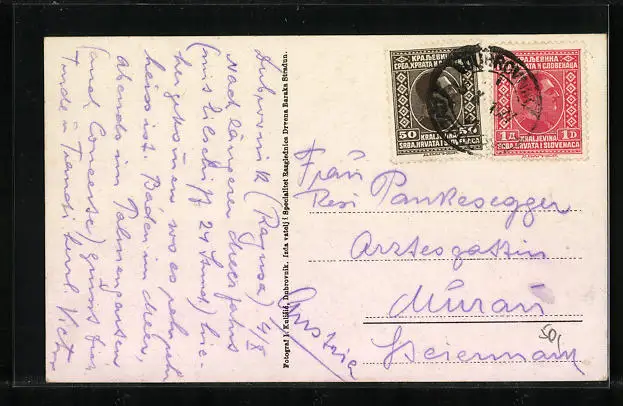 Dubrovnik (Ragusa) 4/X
Nach langerer Meerfahrt
(mis Triest 24 Stund) hie-
her gekommen wo es sehr
heiss ist Baden im Meer,
abends im Palmengarten
(und Concerte) grüsst Sie
Fotograf I. Kulišić, Dubrovnik. Izda vatelj i Specialitet Razglednice Drvena Baraka Stradun.
КРАЉЕВИНА
СРБА, ХРВАТА И СЛОВЕНАЦА
50
KRALJEVINA
SRBA, HRVATA I SLOVENACA
КРАЉЕВИНА
СРБА, ХРВАТА И СЛОВЕНАЦА
1Д
1D
KRALJEVINA
SRBA, HRVATA I SLOVENACA
DUBROVNIK
Frau
Resi Pankesegger
Arztesgattin
Murau
Steiermark
Austria
50,